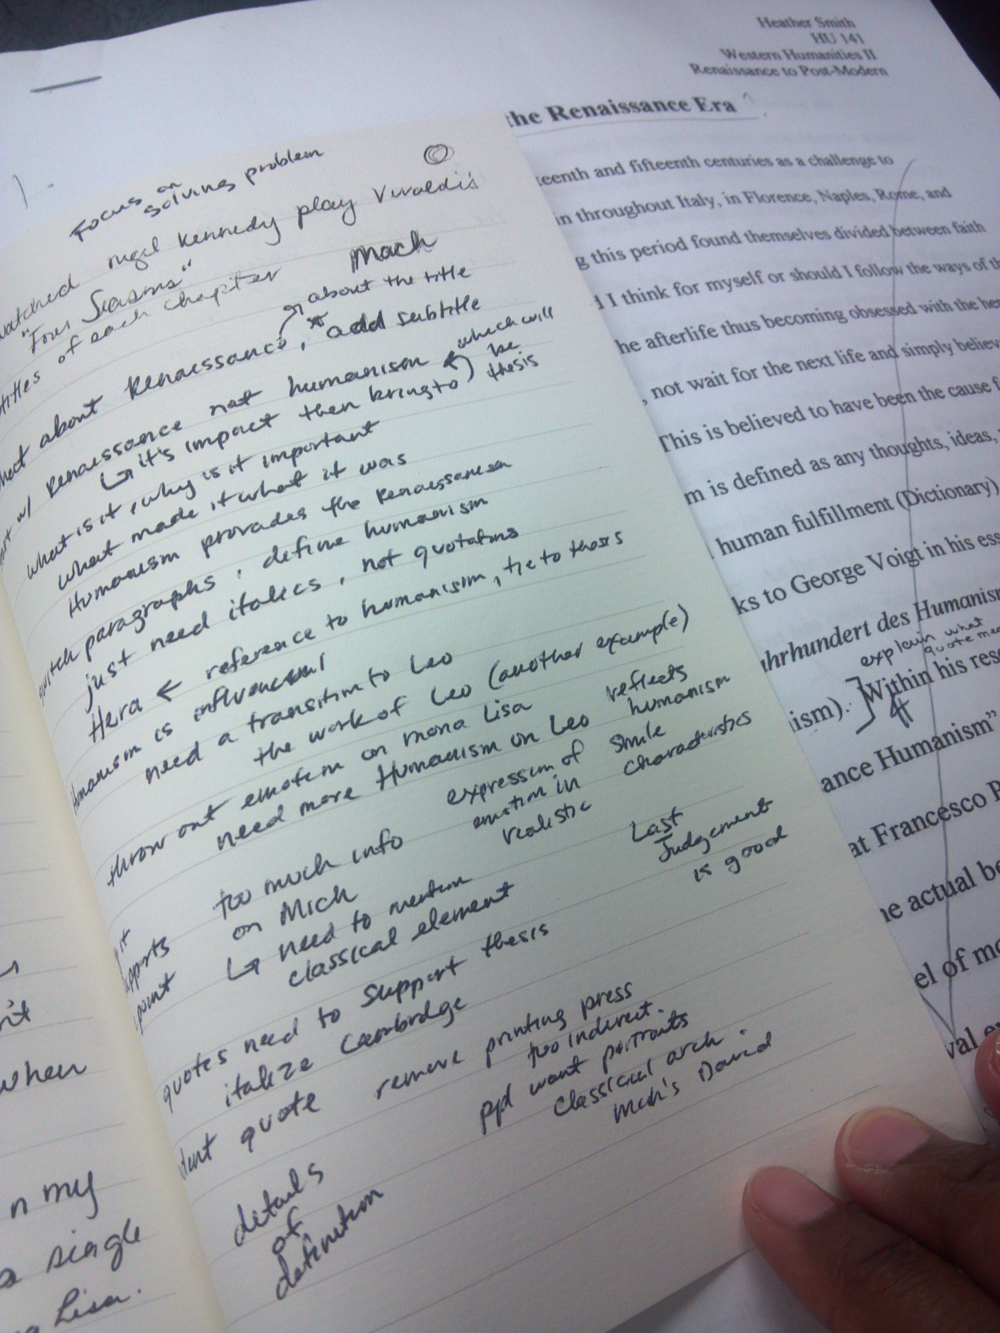 Heather Smith
HU 141
Western Humanities II
Renaissance to Post-Modern
the Renaissance Era
teenth and fifteenth centuries as a challenge to
in throughout Italy, in Florence, Naples, Rome, and
g this period found themselves divided between faith
I think for myself or should I follow the ways of th
he afterlife thus becoming obsessed with the he
, not wait for the next life and simply believ
This is believed to have been the cause f
m is defined as any thoughts, ideas,
human fulfillment (Dictionary)
ks to George Voigt in his ess
ahrhundert des Humanism
explain what
quote
ism). Within his rese
ance Humanism”
at Francesco P
he actual be
el of mo
val
Focus on
solving problem
watched nigel Kennedy play Vivaldi's
"Four Seasons"
titles of each chapter
Mach
about the title
what about Renaissance, add subtitle
start w/ Renaissance not humanism which will
be
thesis
it's impact then bring to
what is it, why is it important
what made it what it was
Humanism provades the Renaissance
switch paragraphs, define humanism
just need italics, not quotations
Hera reference to humanism, tie to thesis
Humanism is influencial
need a transition to Leo
the work of Leo (another example)
throw out emotion on mona Lisa
need more Humanism on Leo reflects
humanism
expression of smile
emotion in characteristics
realistic
too much info
on Mich
need to mention
classical element
Last
Judgement
is good
it
supports
point
quotes need to support thesis
italize Cambridge
quote remove printing press
too indirect.
ppl want portraits
classical arch
Mich's David
details
of
definition
when
n my
single
Lisa.